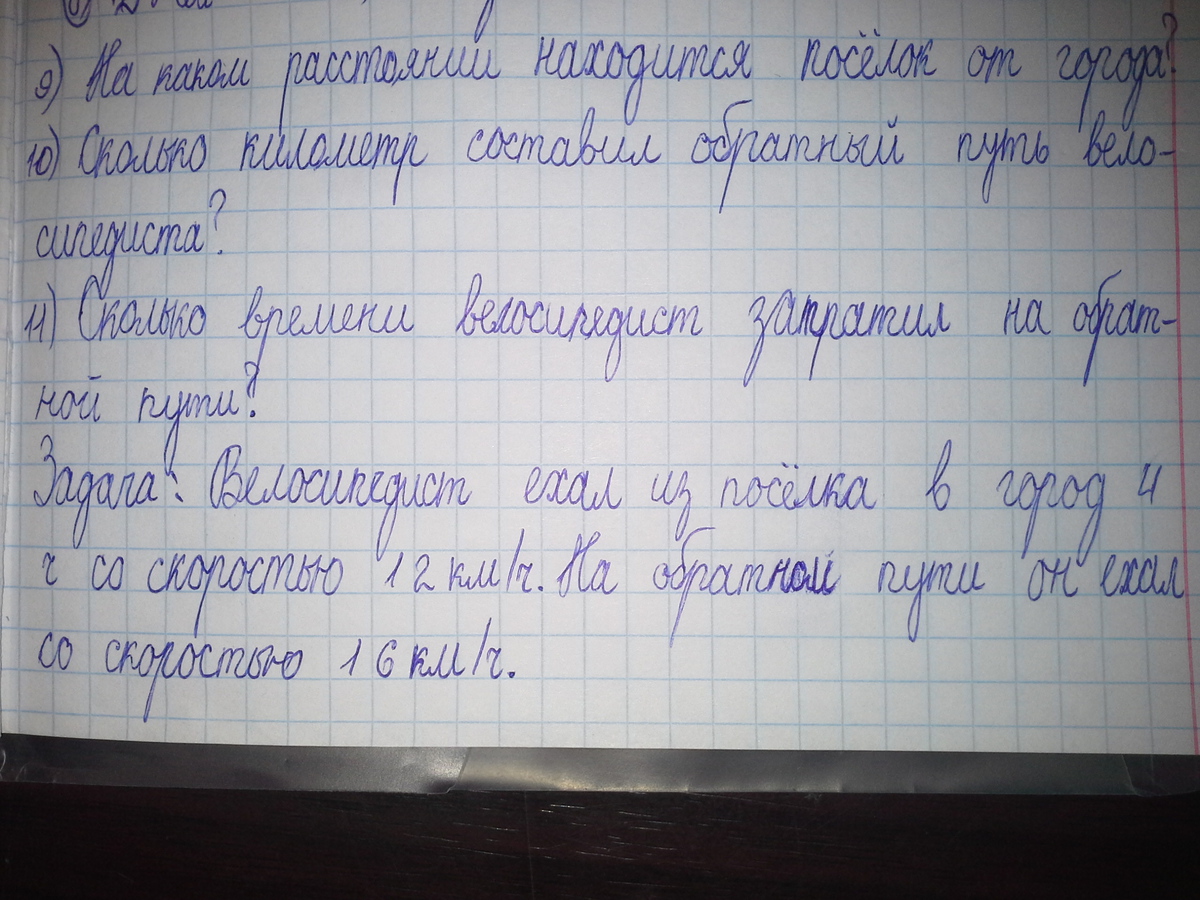 9) На каком расстоянии находится посёлок от города?
10) Сколько километр составил обратный путь вело-
сипедиста?
11) Сколько времени велосипедист затратил на обрат-
ной пути?
Задача: Велосипедист ехал из посёлка в город 4
ч со скоростью 12 км/ч. На обратном пути он ехал
со скоростью 16 км/ч.